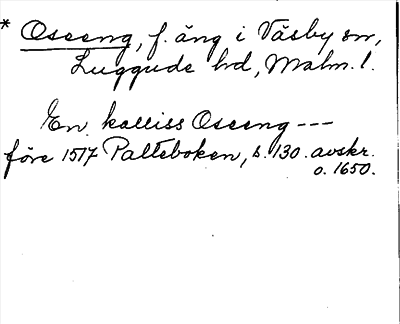 * Oseeng, f. äng i Väsby sn,
Luggude hd, Malm. l.
En kalliss Oseeng ---
före 1517 Palteboken, s. 130. avskr.
o. 1650.